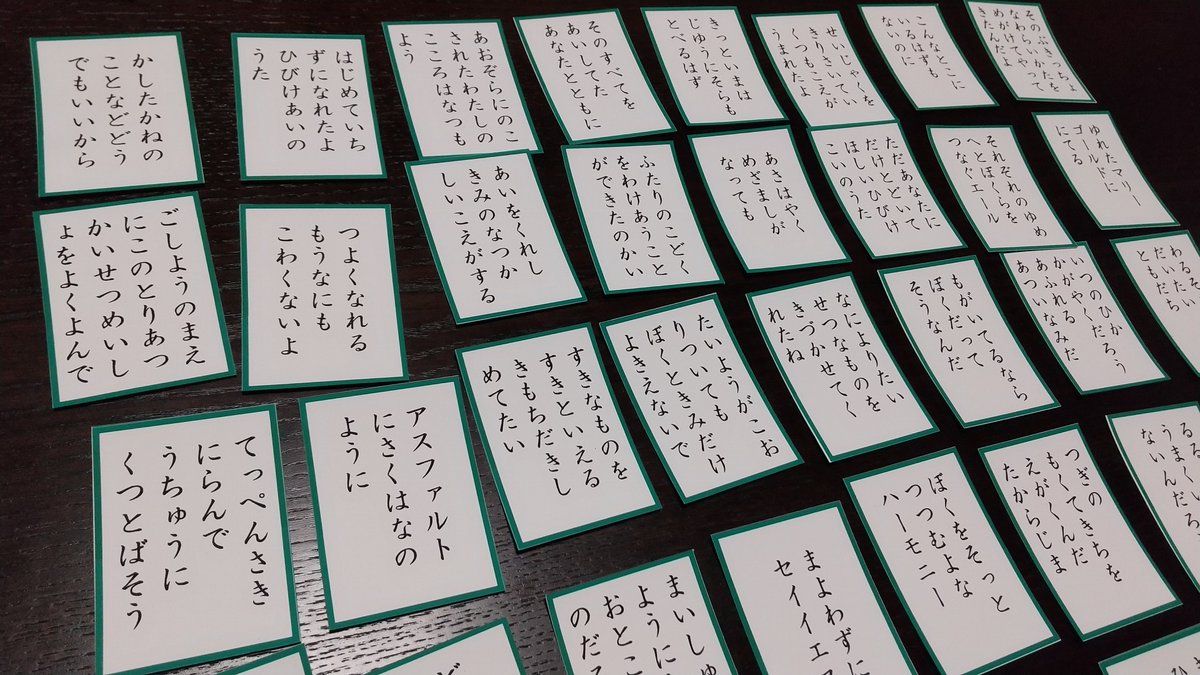 かしたかねの
ことなどどう
でもいいから
はじめていち
ずになれたよ
ひびけあいの
うた
あおぞらにのこ
されたわたしの
こころはなつも
よう
そのすべてを
あいしてた
あなたとともに
きっといまは
じゆうにそらも
とべるはず
せいじゃくを
きりさいてい
くつもこえが
うまれたよ
こんなとこに
いるはずも
ないのに
そのぶきっちょ
なわらいかたを
めがけてやって
きたんだよ
ごしようのまえ
にこのとりあつ
かいせつめいし
ょをよくよんで
つよくなれる
もうなにも
こわくないよ
あいをくれし
きみのなつか
しいこえがする
ふたりのこどく
をわけあうこと
ができたのかい
あさはやく
めざましが
なっても
ただあなたに
だけとどいて
ほしいひびけ
こいのうた
それぞれのゆめ
へとぼくらを
つなぐエール
ゆれたマリー
ゴールドに
にてる
てっぺんさき
にらんで
うちゅうに
くつとばそう
アスファルト
にさくはなの
ように
すきなものを
すきといえる
きもちだきし
めてたい
たいようがこお
りついても
ぼくときみだけ
よきえないで
なによりたい
せつなものを
きづかせてく
れたね
もがいてるなら
ぼくだって
そうなんだ
いつのひかだろう
かがやく
あふれる
あついなみだ
わるそ
だいたい
ともだち
まいしゅ
ように
おとこ
のだろ
まよわずに
セイイエス
ぼくをそっと
つつむよな
ハーモニー
つぎのきちを
もくてくんだ
えがくんだ
たからじま
るまくる
ないんだろ